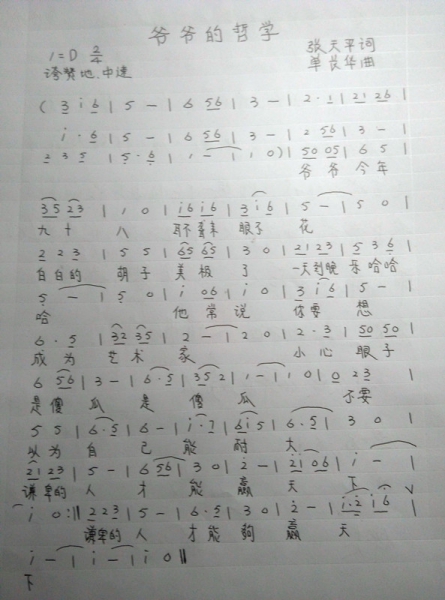 爷爷的哲学
1=D 2/4 张天平词
诙赞地.中速 单长华曲
( 3 i 6 | 5 - | 6 56 | 3 - | 2 · 1 | 21 26 |
i · 6 | 5 - | 6 56 | 3 - | 2 56 | 3 - |
2 3 5 | 5 · 6 | 1 - | 1 0 ) | 50 05 | 6 5 |
爷爷今年
35 23 | 1 0 | i6 i6 | 3 i 6 | 5 - | 5 0 |
九十八 眼子 花
2 2 3 | 5 5 | 65 65 | 3 0 | 21 23 | 5 3 6 |
白白的 胡子 美极了 一天到晚 呆哈哈
5 - | 5 0 | i 06 | i 0 | 3 i 6 | 5 - |
哈 他常说 你要想
6 · 5 | 32 35 | 2 - | 2 0 | 2 · 3 | 50 50 |
成为 艺术家 小心眼子
6 56 | 3 - | 6 · 5 | 35 2 | 1 - | 1 0 | 0 23 |
是傻瓜 是傻瓜 不要
5 5 | 6 · 5 | 6 - | i · 7 | 6 i 5 | 6 · 5 | 3 0 |
以为自己能耐大
21 23 | 5 - | 6 56 | 3 0 | 2 - | 2i 06 | i - |
谦卑的人才能赢天下
i 0 :|| 2 2 3 | 5 - | 6 · 5 | 3 0 | 2 - | i·2 i6 |
谦卑的人才能够赢天
i - | i - | i 0 ||
下